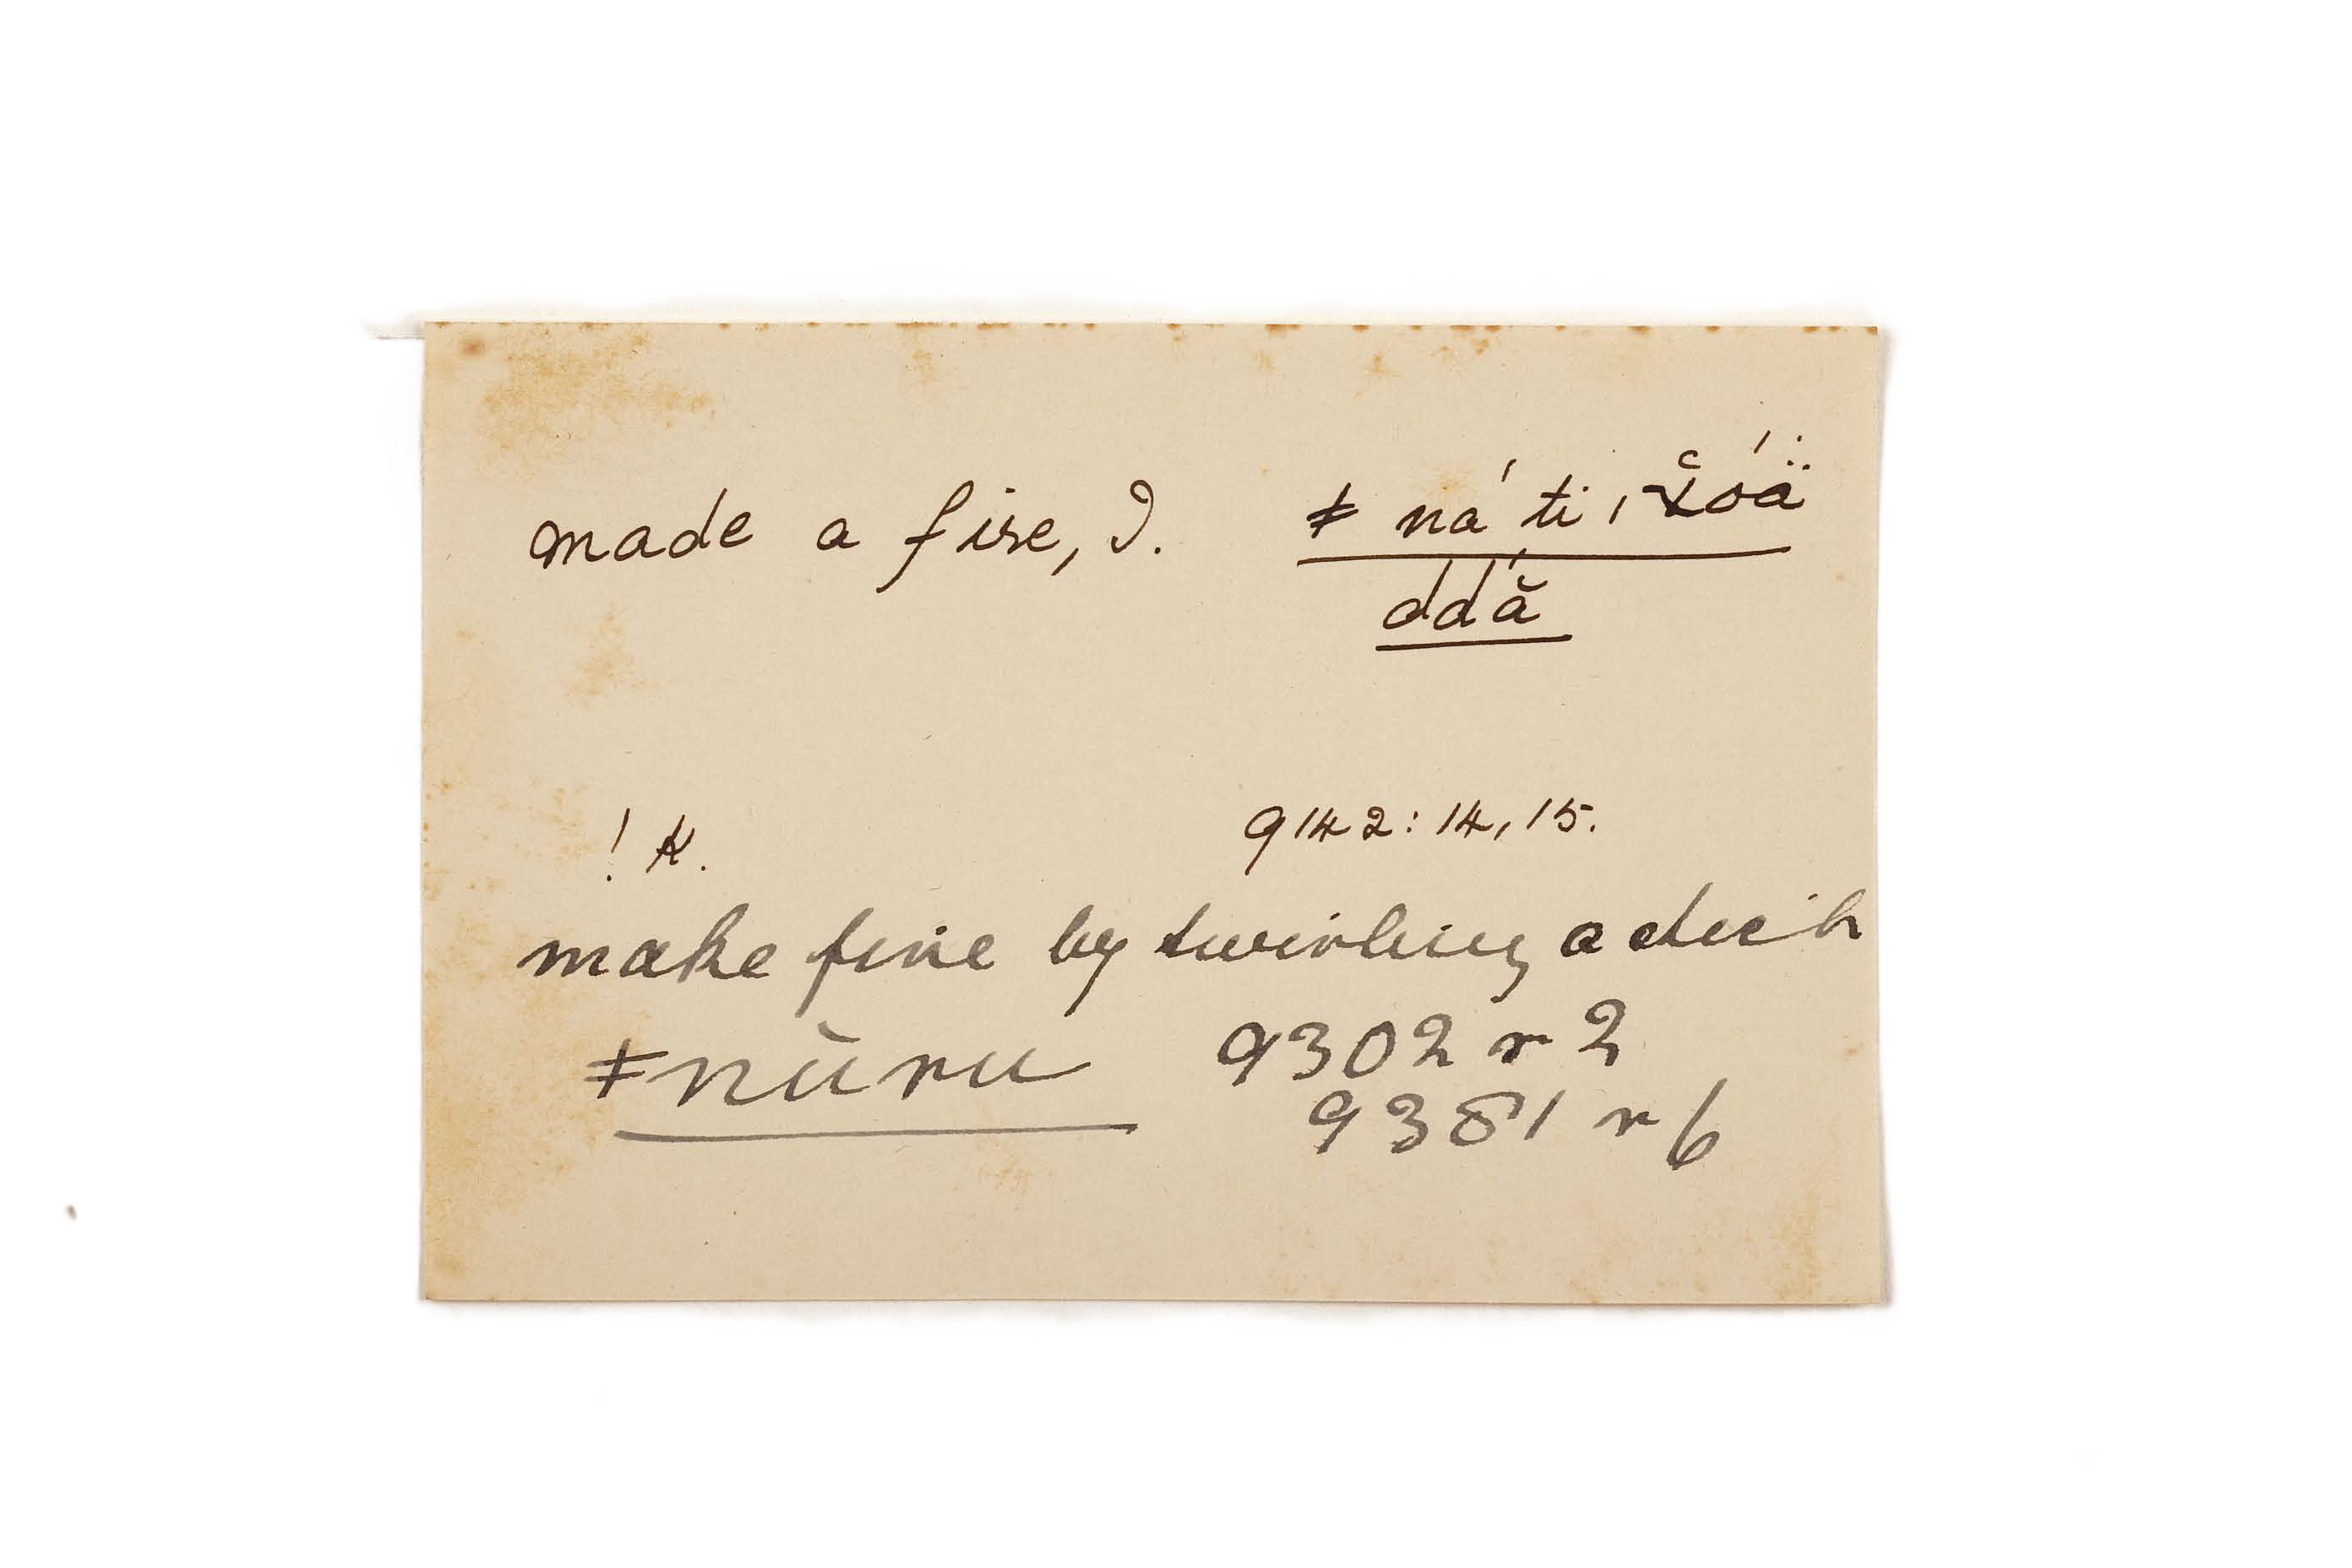 made a fire, I. ǂ ná ti,
ddắ
! K. 9142: 14, 15.
make fire by twirling a stick
ǂnūru 9302 r 2
9381 r 6